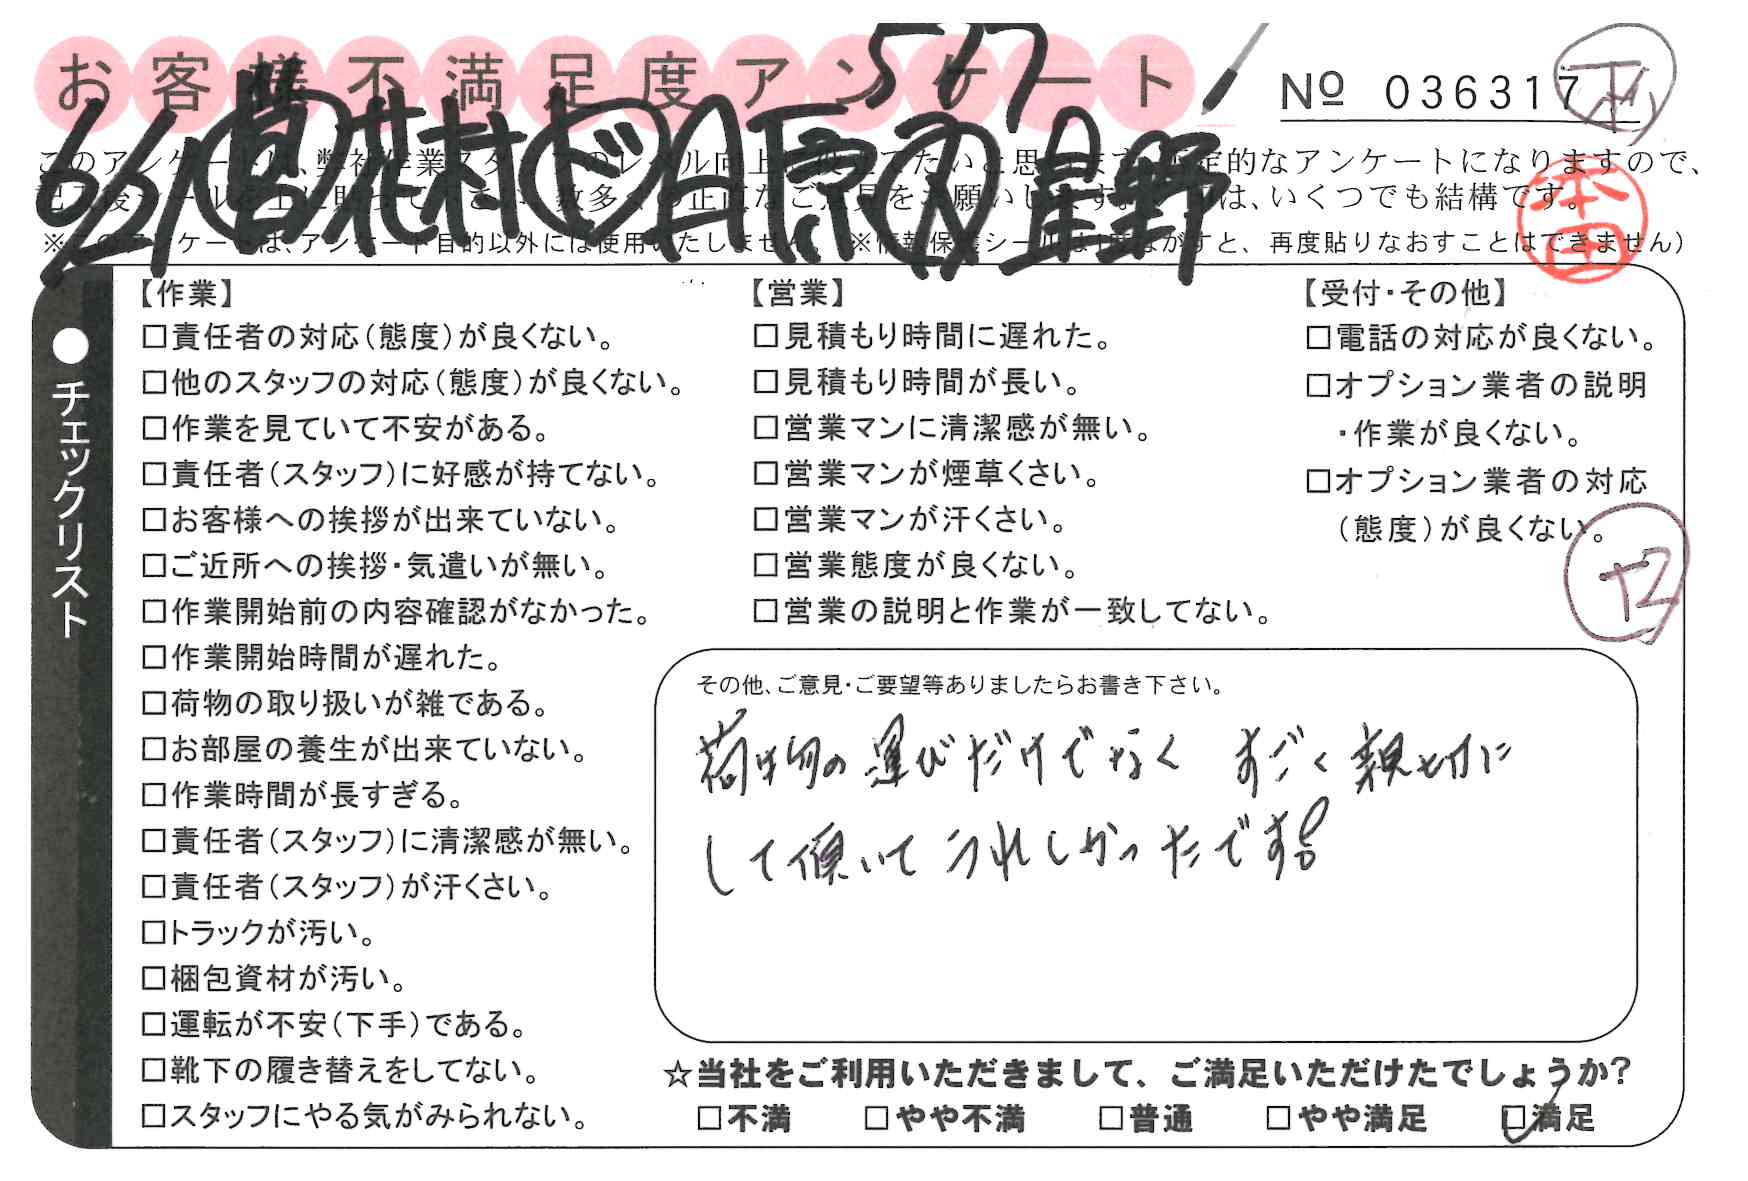 お客様不満足度アンケート
517
№ 036317
6/21 営 花村 ド 日原 星野
このアンケートは、弊社作業スタッフのレベル向上に役立てたいと思います。否定的なアンケートになりますので、
記入後シールを上に貼って下さい。数多くの正直なご意見をお願いします。は、いくつでも結構です。
※このアンケートは、アンケート目的以外には使用いたしません。(※情報保護シールは1度はがすと、再度貼りなおすことはできません)
本田
●チェックリスト
【作業】
□責任者の対応(態度)が良くない。
□他のスタッフの対応(態度)が良くない。
□作業を見ていて不安がある。
□責任者(スタッフ)に好感が持てない。
□お客様への挨拶が出来ていない。
□ご近所への挨拶・気遣いが無い。
□作業開始前の内容確認がなかった。
□作業開始時間が遅れた。
□荷物の取り扱いが雑である。
□お部屋の養生が出来ていない。
□作業時間が長すぎる。
□責任者(スタッフ)に清潔感が無い。
□責任者(スタッフ)が汗くさい。
□トラックが汚い。
□梱包資材が汚い。
□運転が不安(下手)である。
□靴下の履き替えをしてない。
□スタッフにやる気がみられない。
【営業】
□見積もり時間に遅れた。
□見積もり時間が長い。
□営業マンに清潔感が無い。
□営業マンが煙草くさい。
□営業マンが汗くさい。
□営業態度が良くない。
□営業の説明と作業が一致してない。
【受付・その他】
□電話の対応が良くない。
□オプション業者の説明
・作業が良くない。
□オプション業者の対応
(態度)が良くない。
その他、ご意見・ご要望等ありましたらお書き下さい。
荷物の運びだけでなく すごく親切に
して頂いてうれしかったです!
☆当社をご利用いただきまして、ご満足いただけたでしょうか?
□不満 □やや不満 □普通 □やや満足 □満足